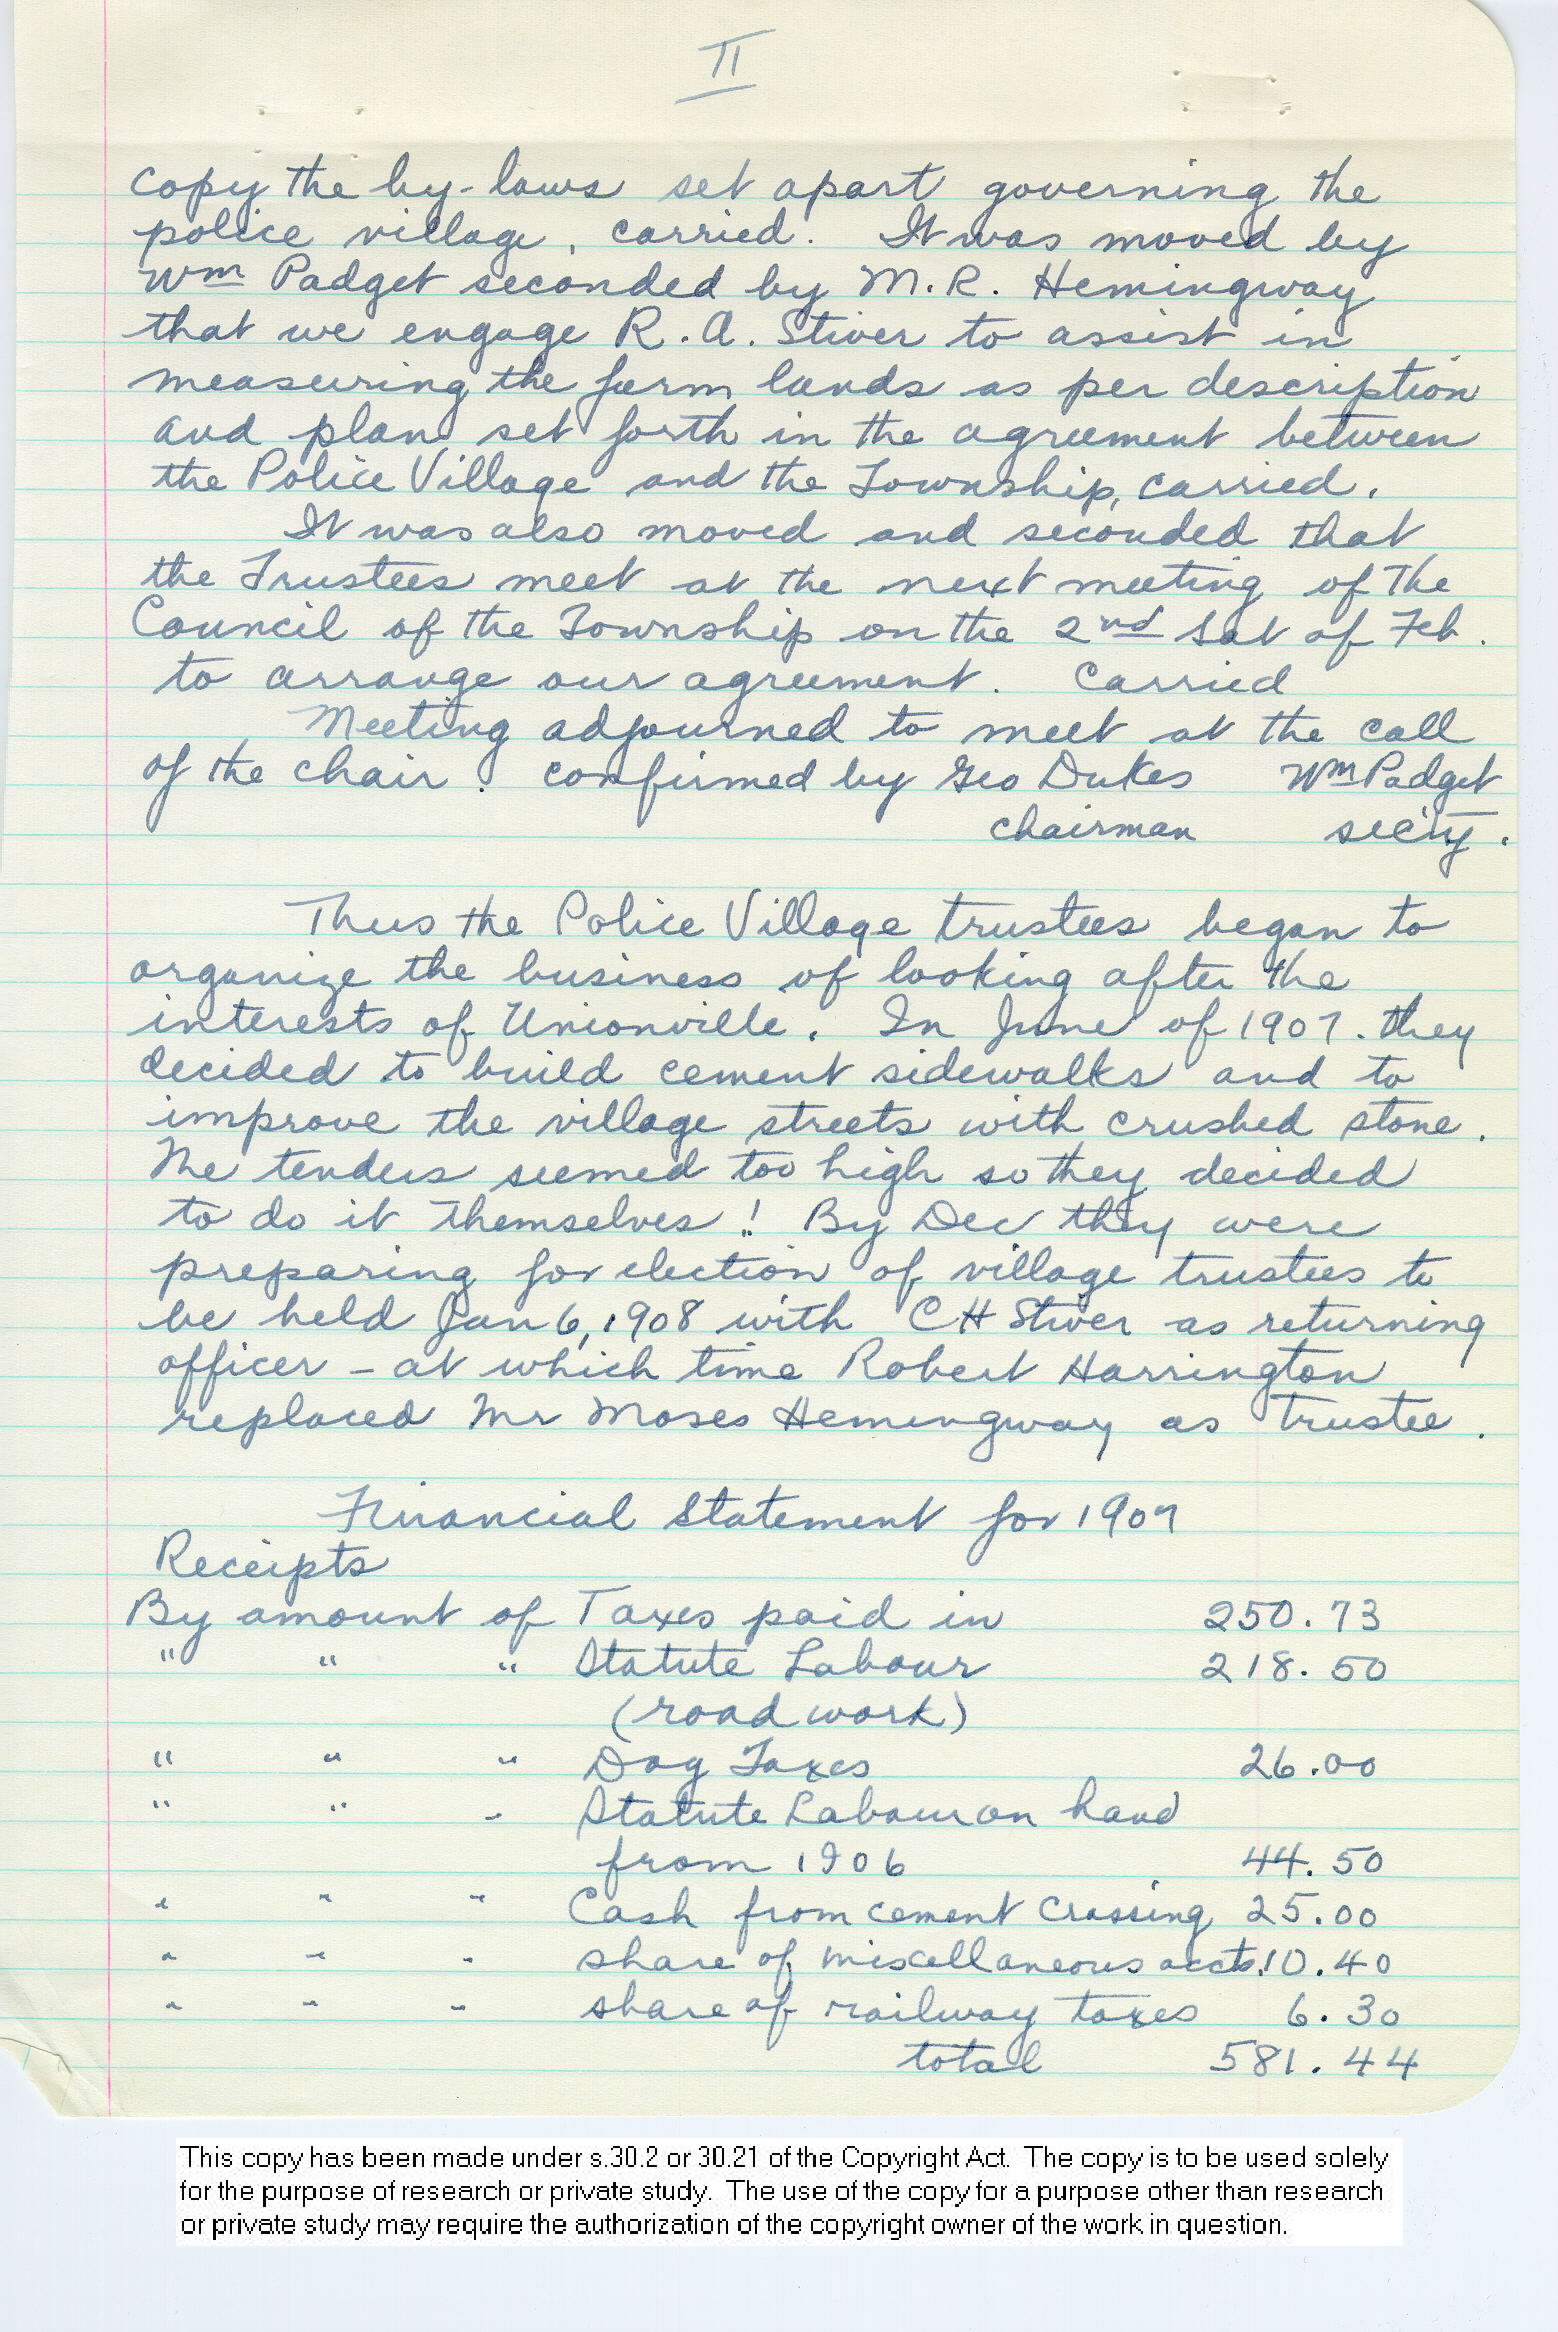 II
copy the by-laws set apart governing the
police village, carried. It was moved by
Wm Padget seconded by M. R. Hemingway
that we engage R. A. Stiver to assist in
measuring the farm lands as per description
and plan set forth in the agreement between
the Police Village and the Township, carried.
It was also moved and seconded that
the Trustees meet at the next meeting of the
Council of the Township on the 2nd Sat of Feb.
to arrange our agreement. Carried
Meeting adjourned to meet at the call
of the chair. confirmed by Geo Dukes Wm Padget
chairman sec'ty.
Thus the Police Village trustees began to
organize the business of looking after the
interests of Unionville. In June of 1907. they
decided to build cement sidewalks and to
improve the village streets with crushed stone.
The tenders seemed too high so they decided
to do it themselves! By Dec they were
preparing for election of village trustees to
be held Jan 6, 1908 with C H Stiver as returning
officer - at which time Robert Harrington
replaced Mr Moses Hemingway as trustee.
Financial Statement for 1907
Receipts
By amount of Taxes paid in 250.73
" " " Statute Labour 218.50
(road work)
" " " Dog Taxes 26.00
" " " Statute Labour on hand
from 1906 44.50
" " " Cash from cement crossing 25.00
" " " share of miscellaneous accts. 10.40
" " " share of railway taxes 6.30
total 581.44
This copy has been made under s.30.2 or 30.21 of the Copyright Act. The copy is to be used solely
for the purpose of research or private study. The use of the copy for a purpose other than research
or private study may require the authorization of the copyright owner of the work in question.